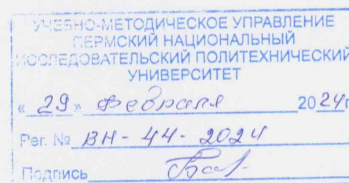 УЧЕБНО-МЕТОДИЧЕСКОЕ УПРАВЛЕНИЕ
ПЕРМСКИЙ НАЦИОНАЛЬНЫЙ
ИССЛЕДОВАТЕЛЬСКИЙ ПОЛИТЕХНИЧЕСКИЙ
УНИВЕРСИТЕТ
« 29 » февраля 2024г
Рег. № ВН-44-2024
Подпись